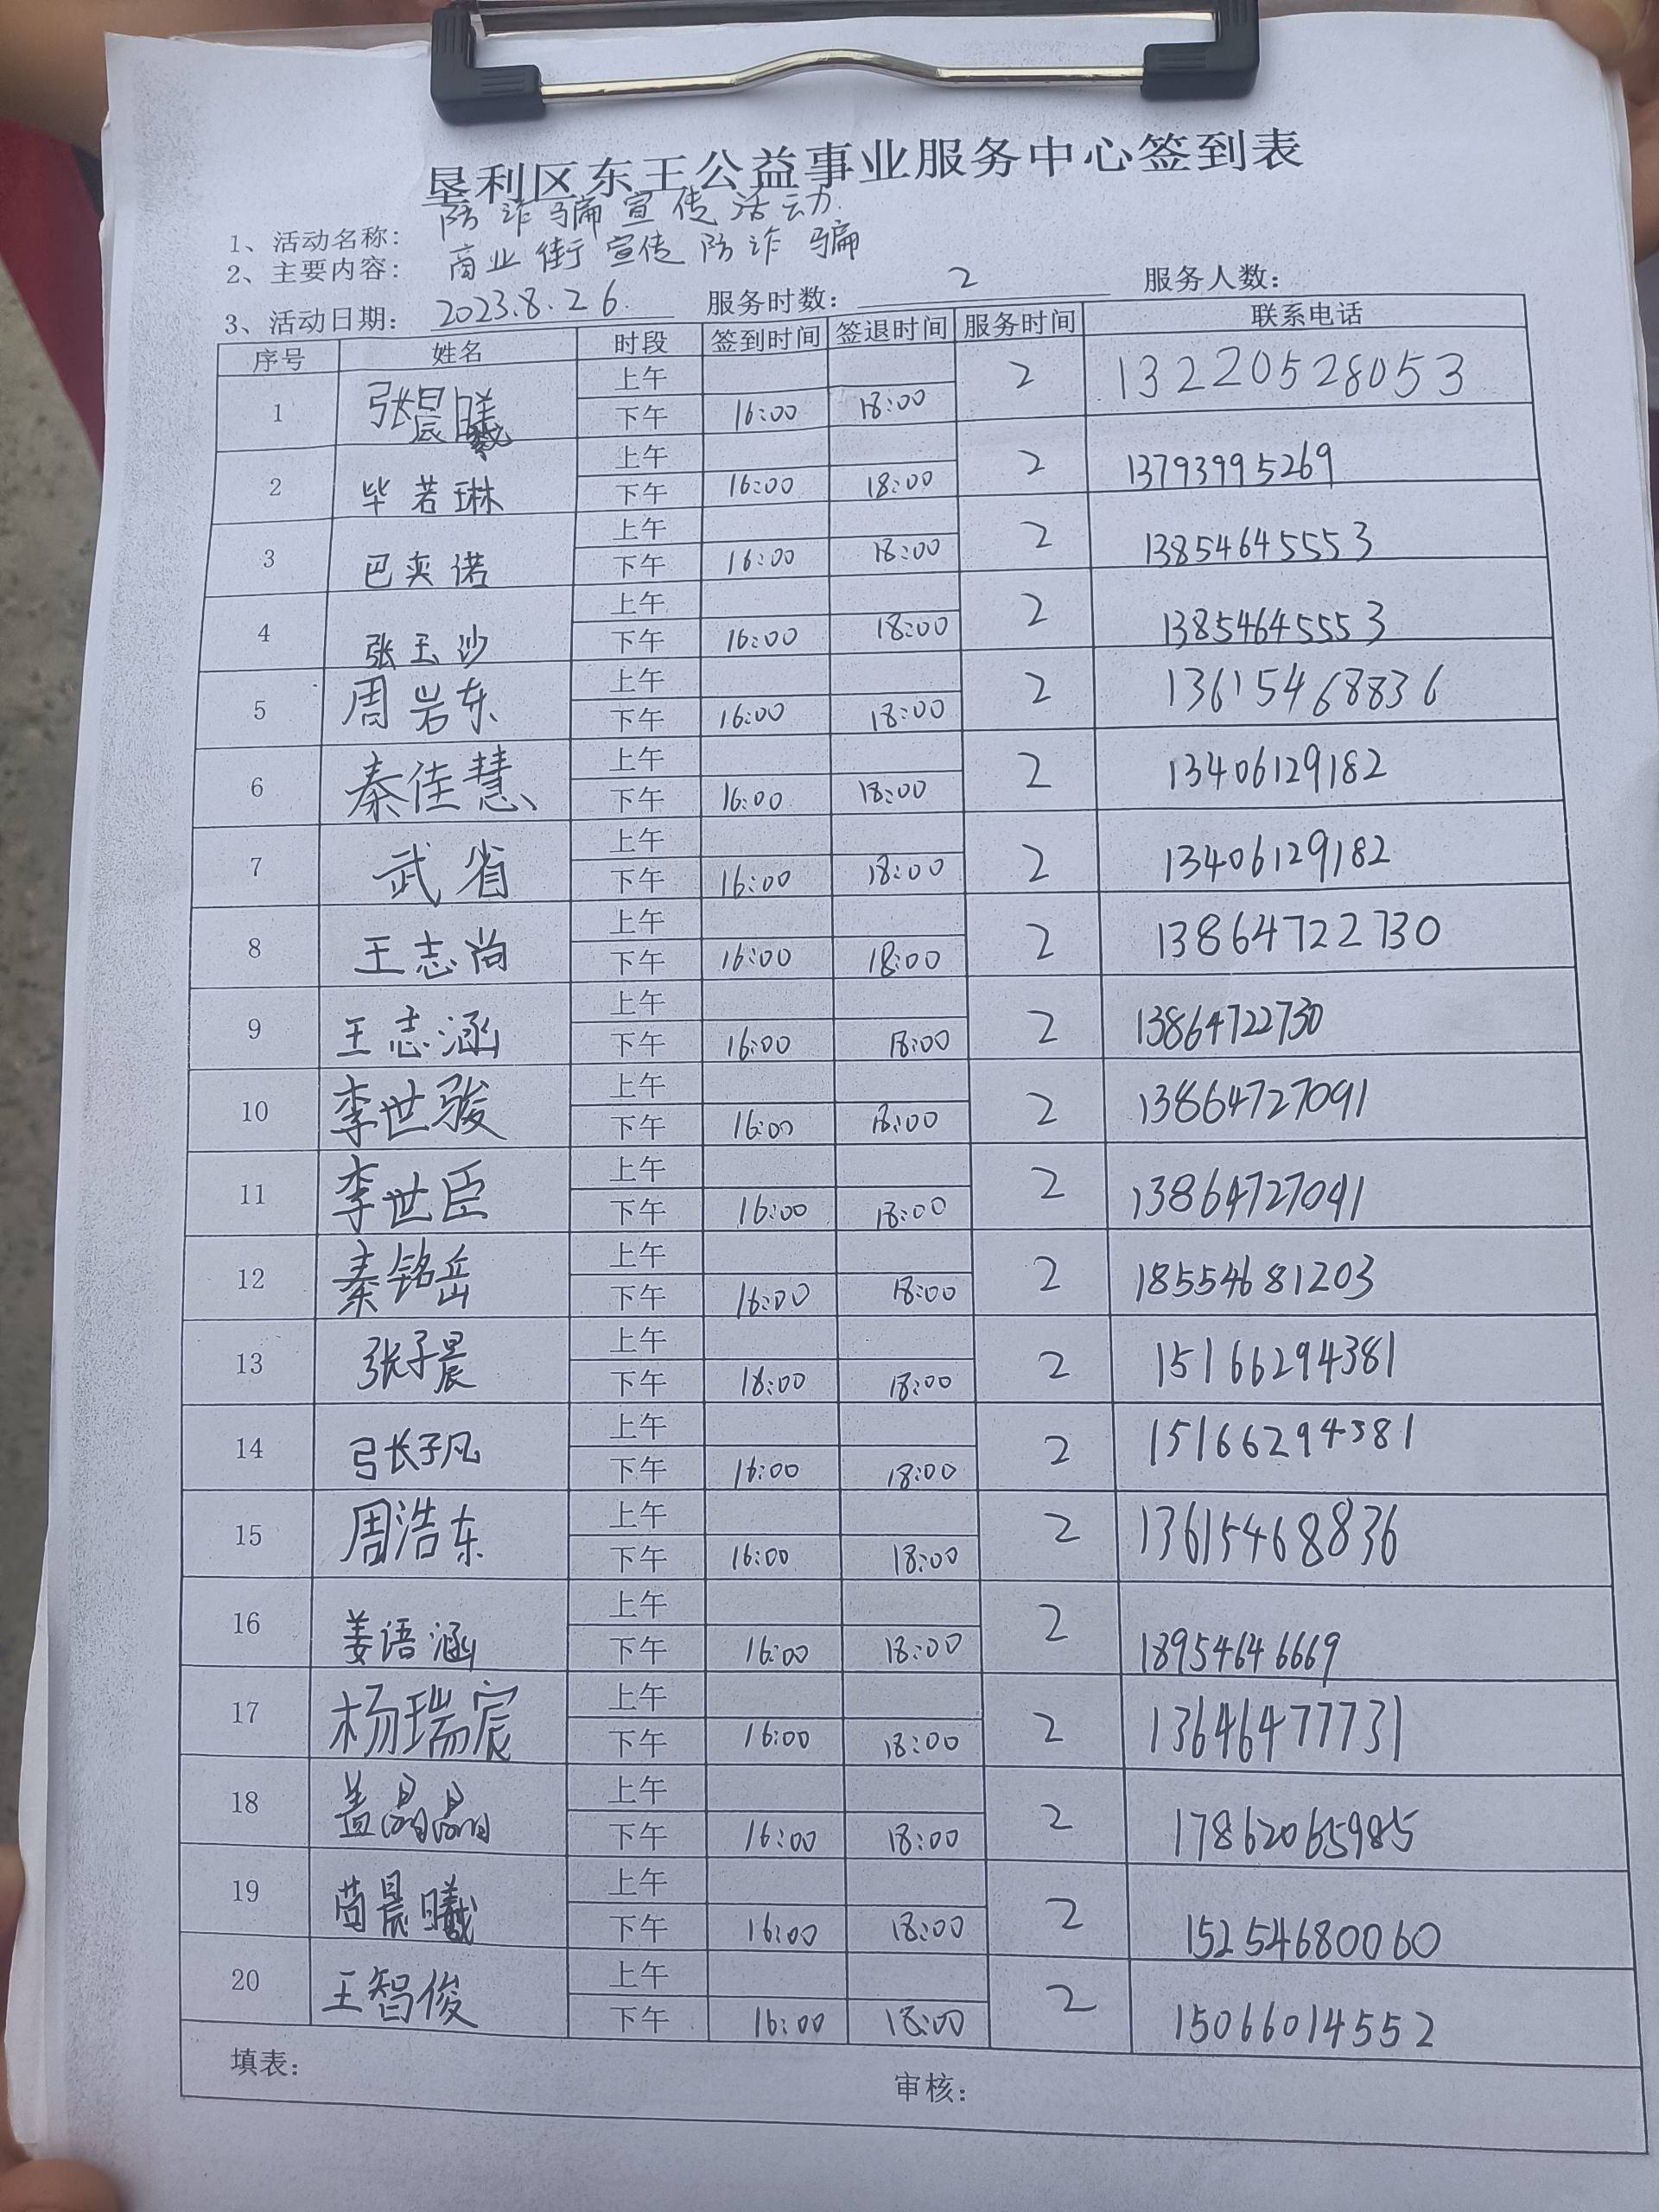 垦利区东王公益事业服务中心签到表
1、活动名称: 防诈骗宣传活动.
2、主要内容: 商业街宣传防诈骗
3、活动日期: 2023.8.26. 服务时数: 2 服务人数:
序号 姓名 时段 签到时间 签退时间 服务时间 联系电话
1 张晨曦 上午 2 13220528053
下午 16:00 18:00
2 毕若琳 上午 2 13793995269
下午 16:00 18:00
3 巴奕诺 上午 2 13854645553
下午 16:00 18:00
4 张玉沙 上午 2 13854645553
下午 16:00 18:00
5 周岩东 上午 2 13615468836
下午 16:00 18:00
6 秦佳慧 上午 2 13406129182
下午 16:00 18:00
7 武省 上午 2 13406129182
下午 16:00 18:00
8 王志尚 上午 2 13864722730
下午 16:00 18:00
9 王志涵 上午 2 13864722730
下午 16:00 18:00
10 李世骏 上午 2 13864727091
下午 16:00 18:00
11 李世臣 上午 2 13864727091
下午 16:00 18:00
12 秦铭岳 上午 2 18554681203
下午 16:00 18:00
13 张子晨 上午 2 15166294381
下午 18:00 18:00
14 张子凡 上午 2 15166294381
下午 16:00 18:00
15 周浩东 上午 2 13615468836
下午 16:00 18:00
16 姜语涵 上午 2 18954646669
下午 16:00 18:00
17 杨瑞宸 上午 2 13646477731
下午 16:00 18:00
18 盖晶晶 上午 2 17862065985
下午 16:00 18:00
19 晨曦 上午 2 15254680060
下午 16:00 18:00
20 王智俊 上午 2 15066014552
下午 16:00 18:00
填表: 审核: